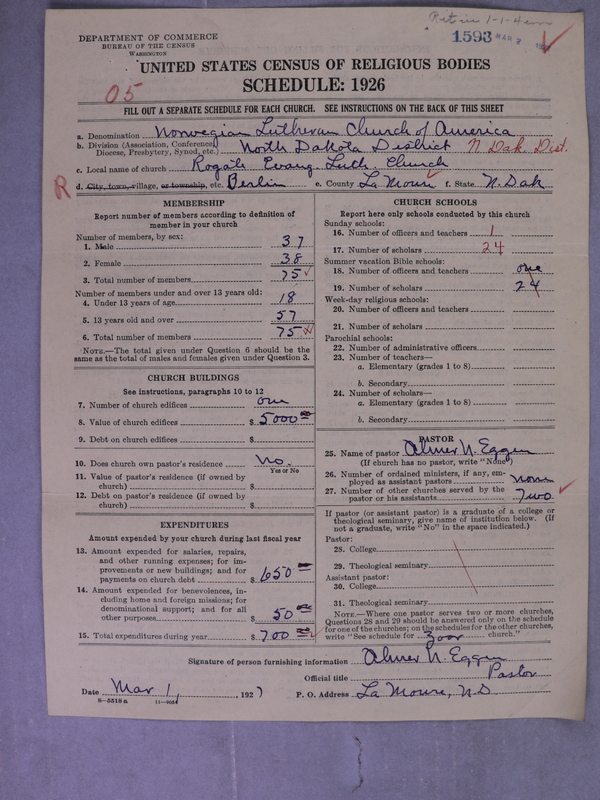 DEPARTMENT OF COMMERCE
BUREAU OF THE CENSUS
WASHINGTON
1593 MAR
UNITED STATES CENSUS OF RELIGIOUS BODIES
SCHEDULE: 1926
05
FILL OUT A SEPARATE SCHEDULE FOR EACH CHURCH. SEE INSTRUCTIONS ON THE BACK OF THIS SHEET
a. Denomination Norwegian Lutheran Church of America
b. Division (Association, Conference, Diocese, Presbytery, Synod, etc.) North Dakota District N. Dak. Dist.
c. Local name of church Rogate Evang. Luth. Church
R
d. City, town, village, or township, etc. Berlin e. County La Moure f. State N. Dak
MEMBERSHIP
Report number of members according to definition of
member in your church
Number of members, by sex:
1. Male 37
2. Female 38
3. Total number of members 75
Number of members under and over 13 years old:
4. Under 13 years of age 18
5. 13 years old and over 57
6. Total number of members 75
NOTE.—The total given under Question 6 should be the
same as the total of males and females given under Question 3.
CHURCH BUILDINGS
See instructions, paragraphs 10 to 12
7. Number of church edifices one
8. Value of church edifices $ 5000 00
9. Debt on church edifices $
10. Does church own pastor's residence No.
Yes or No
11. Value of pastor's residence (if owned by
church) $
12. Debt on pastor's residence (if owned by
church) $
EXPENDITURES
Amount expended by your church during last fiscal year
13. Amount expended for salaries, repairs,
and other running expenses; for im-
provements or new buildings; and for
payments on church debt $ 650 00
14. Amount expended for benevolences, in-
cluding home and foreign missions; for
denominational support; and for all
other purposes $ 50 00
15. Total expenditures during year $ 700 00
CHURCH SCHOOLS
Report here only schools conducted by this church
Sunday schools:
16. Number of officers and teachers 1
17. Number of scholars 24
Summer vacation Bible schools:
18. Number of officers and teachers one
19. Number of scholars 24
Week-day religious schools:
20. Number of officers and teachers
21. Number of scholars
Parochial schools:
22. Number of administrative officers
23. Number of teachers—
a. Elementary (grades 1 to 8)
b. Secondary
24. Number of scholars—
a. Elementary (grades 1 to 8)
b. Secondary
PASTOR
25. Name of pastor Almer N. Eggen
(If church has no pastor, write "None")
26. Number of ordained ministers, if any, em-
ployed as assistant pastors none
27. Number of other churches served by the
pastor or his assistants Two
If pastor (or assistant pastor) is a graduate of a college or
theological seminary, give name of institution below. (If
not a graduate, write "No" in the space indicated.)
Pastor:
28. College
29. Theological seminary
Assistant pastor:
30. College
31. Theological seminary
NOTE.—Where one pastor serves two or more churches,
Questions 28 and 29 should be answered only on the schedule
for one of the churches; on the schedules for the other churches,
write "See schedule for Zoar church."
Signature of person furnishing information Almer N. Eggen
Official title Pastor
Date Mar 1, 1927 P. O. Address La Moure, N.D
8—5518a 11—9054